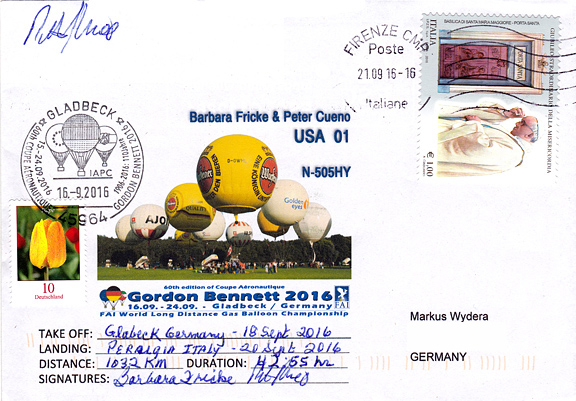 FIRENZE CMP
Poste
21.09 16-16
Italiane
BASILICA DI SANTA MARIA MAGGIORE - PORTA SANTA
ITALIA
GIUBILEO STRAORDINARIO DELLA MISERICORDIA
€1,00
GLADBECK
60th COUPE AÉRONAUTIQUE
15.-24.09.2016
1906-2016: 110 Jahre
GORDON BENNETT 2016
IAPC
16.-9.2016
45964
Barbara Fricke & Peter Cueno
USA 01
N-505HY
Warsteiner
EINE KÖNIGIN
AJO
QUALITY
Golden eyes
10
Deutschland
60th edition of Coupe Aéronautique
Gordon Bennett 2016
16.09. - 24.09. - Gladbeck / Germany
FAI World Long Distance Gas Balloon Championship
FAI
TAKE OFF: Glabeck Germany - 18 Sept 2016
LANDING: PERALGIA ITALY - 20 Sept 2016
DISTANCE: 1032 KM DURATION: 42:55 hr
SIGNATURES: Barbara Fricke
Markus Wydera
GERMANY